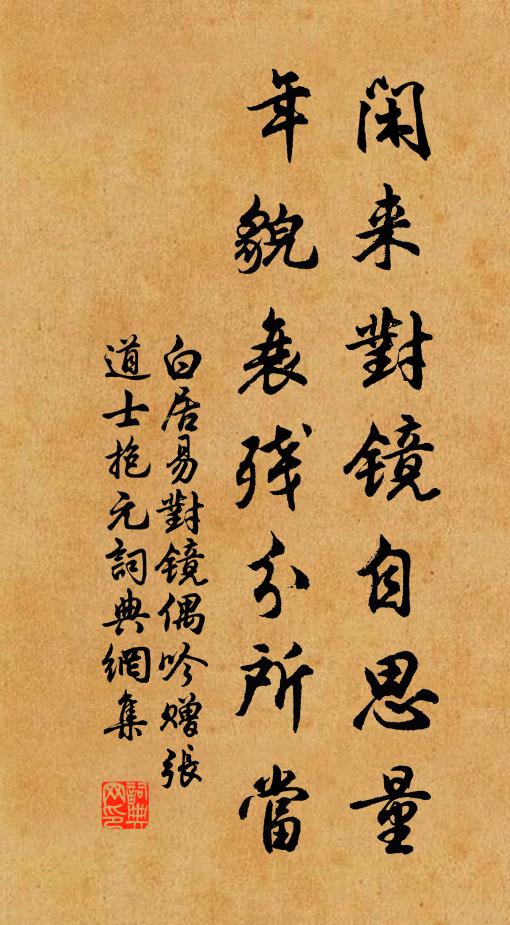 閑来對镜自思量
年貌衰残分所當
白居易對镜偶吟赠張
道士抱元詞典網集
詞典网印